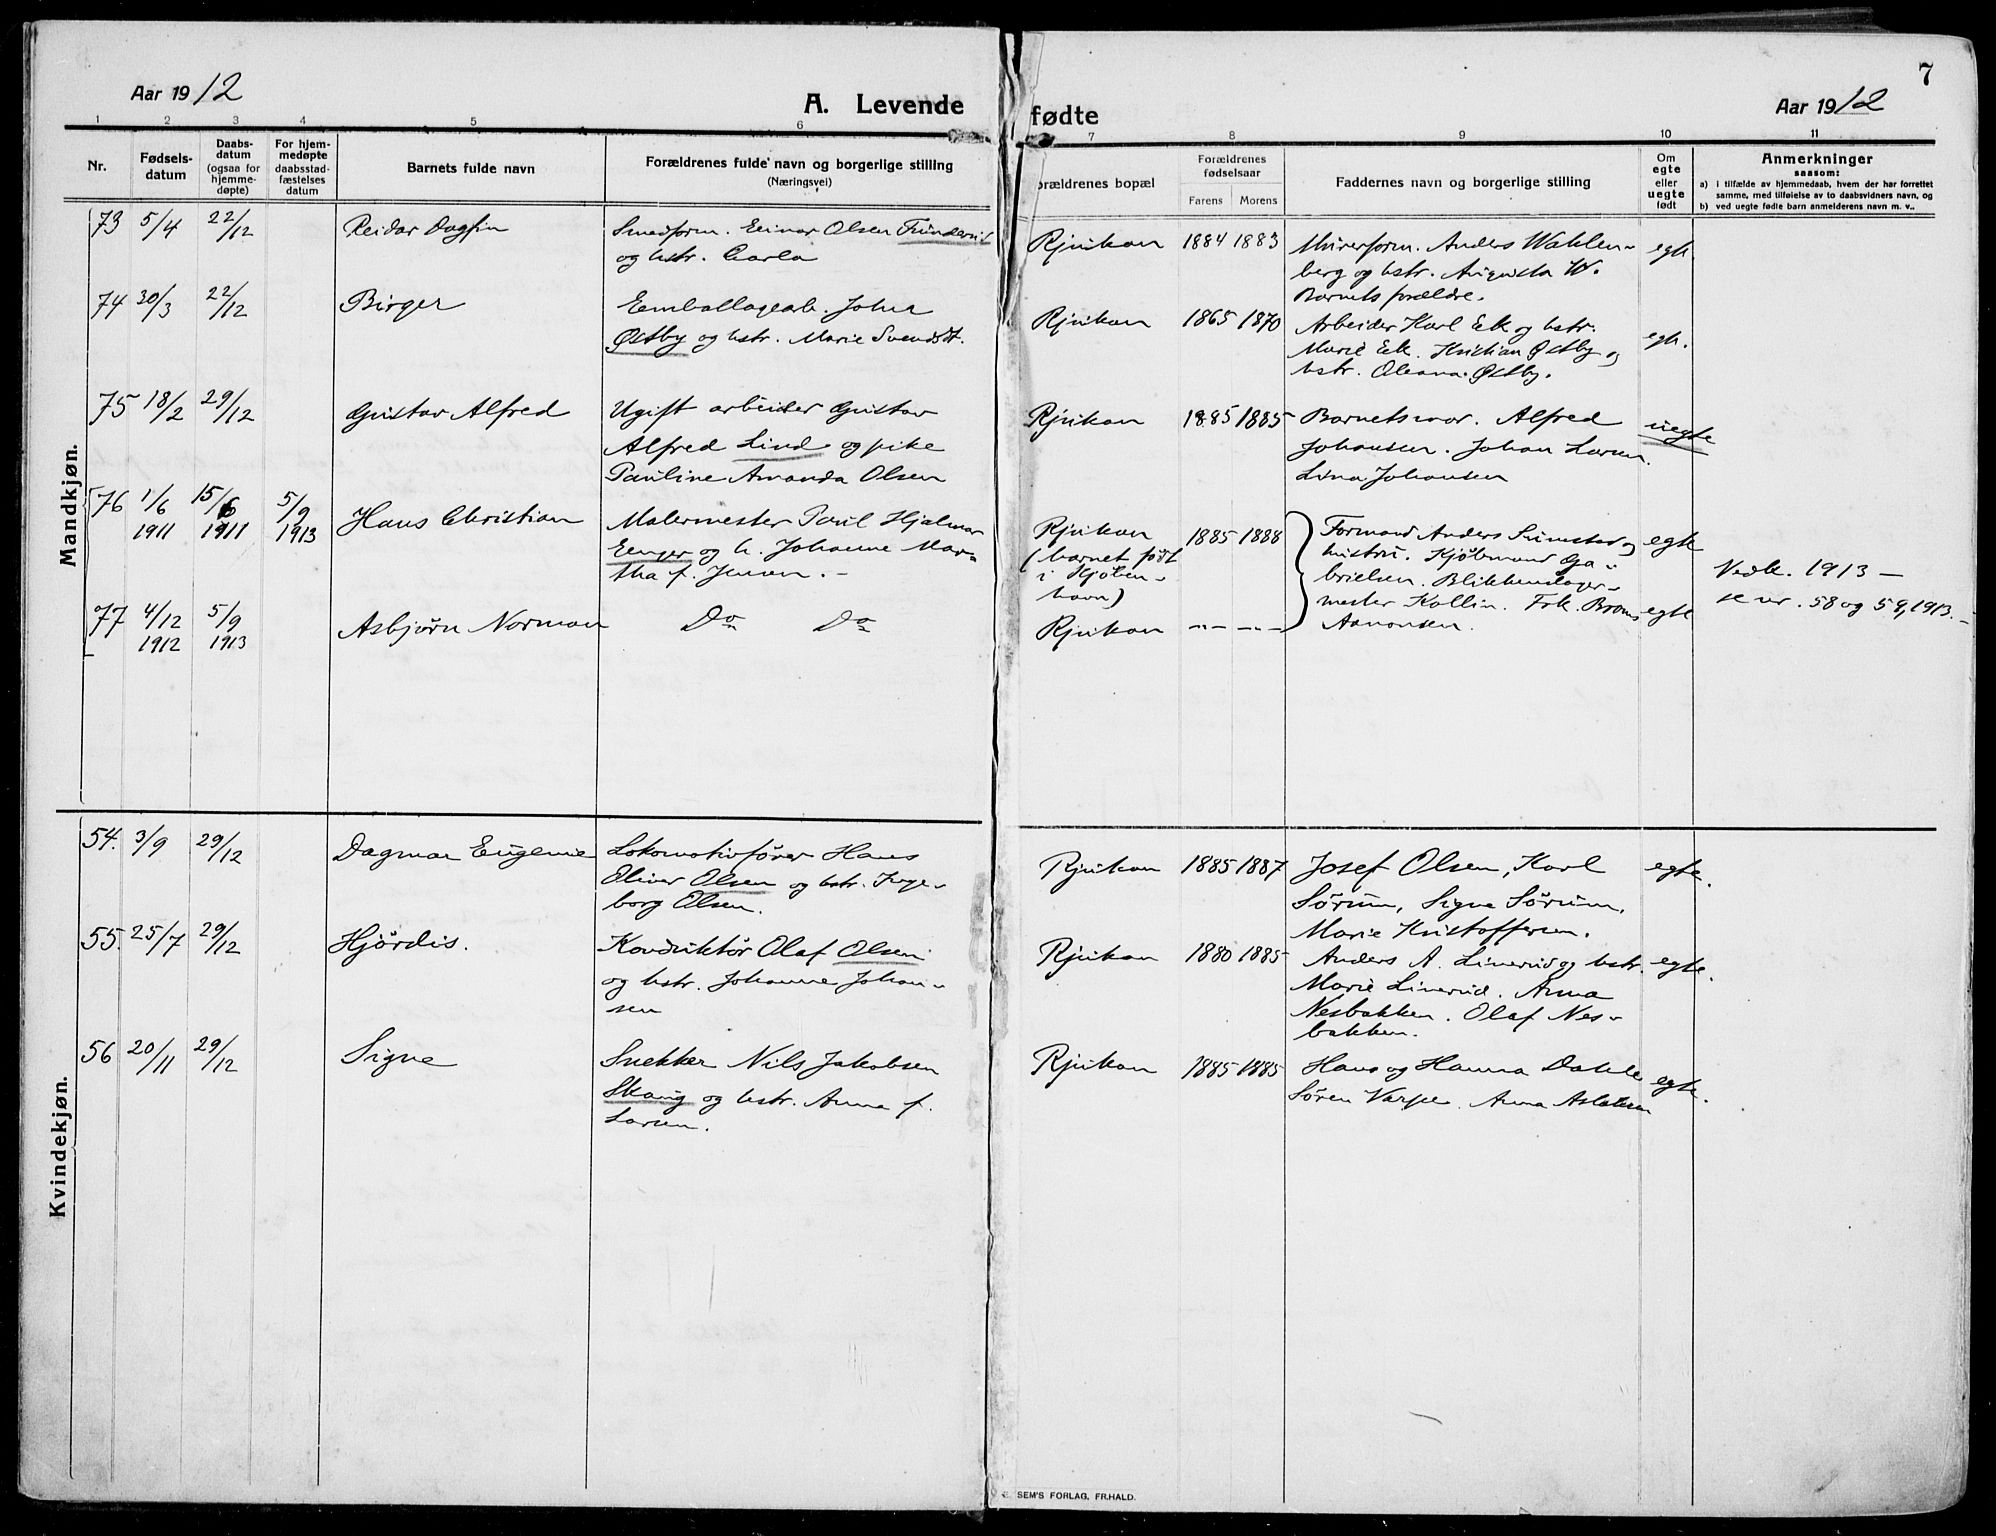 Aar 1912
A. Levende
fødte
Aar 1912
7
1 2 3 4 5 6 7 8 9 10 11
Nr.
Fødsels-
datum
Daabs-
datum
(ogsaa for
hjemme-
døpte)
For hjem-
medøpte
daabsstad-
fæstelses
datum
Barnets fulde navn
Forældrenes fulde navn og borgerlige stilling
(Næringsvei)
orældrenes bopæl
Forældrenes
fødselsaar
Farens Morens
Faddernes navn og borgerlige stilling
Om
egte
eller
uegte
født
Anmerkninger
saasom:
a) i tilfælde av hjemmedaab, hvem der har forrettet
samme, med tilføielse av to daabsvidners navn, og
b) ved uegte fødte barn anmelderens navn m. v..
Mandkjøn.
73 5/4 22/12 Reidar Dagfin
Smedform. Einar Olsen
og hstr. Carla
Rjukan 1884 1883
Murerform. Anders Wahlen-
berg og hstr. Augusta W.
Barnets forældre.
egte.
74 30/3 22/12 Birger
Emballagearb. Johan
Østby og hstr. Marie Svendsdt.
Rjukan 1865 1870
Arbeider Karl Eek og hstr.
Marie Eek. Kristian Østby og
hstr. Oleana Østby.
egte.
75 18/2 29/12 Gustav Alfred
Ugift arbeider Gustav
Alfred Lind og pike
Pauline Amanda Olsen
Rjukan 1885 1885
Barnets mor. Alfred
Johansen. Johan Larsen.
Lina Johansen
uegte
76 1/6 1911 15/6 1911 5/9 1913 Hans Christian
Malermester Paul Hjalmar
Eenger og h. Johanne Mar-
tha f. Jensen. -
Rjukan
(barnet født
i Kjøben-
havn)
1885 1888
Formand Anders og
hustru. Kjøbmand Ga-
brielsen. Blikkenslager-
mester Kollin. Frk.
Aanonsen.
egte
Vedk. 1913 -
se nr. 58 og 59, 1913. -
77 4/12 1912 5/9 1913 Asbjørn Norman
Do Do
Rjukan -"- -"-
egte
Kvindekjøn.
54. 3/9 29/12 Dagmar Eugenie
Lokomotivfører Hans
Oliver Olsen og hstr. Inge-
borg Olsen.
Rjukan 1885 1887
Josef Olsen, Karl
Sørum, Signe Sørum,
Marie Kristoffersen.
egte.
55. 25/7 29/12 Hjørdis.
Konduktør Olaf Olsen
og hstr. Johanne Johan-
sen
Rjukan 1880 1885
Anders A. Linerud og hstr.
Marie Linerud. Anna
Nesbakken. Olaf Nes-
bakken.
egte.
56 20/11 29/12 Signe
Snekker Nils Jakobsen
Skaug og hstr. Anna f.
Larsen.
Rjukan 1885 1885
Hans og Hanna Dahle
Søren Varpe. Anna Aslaksen
egte.
SEM'S FORLAG, FR.HALD.